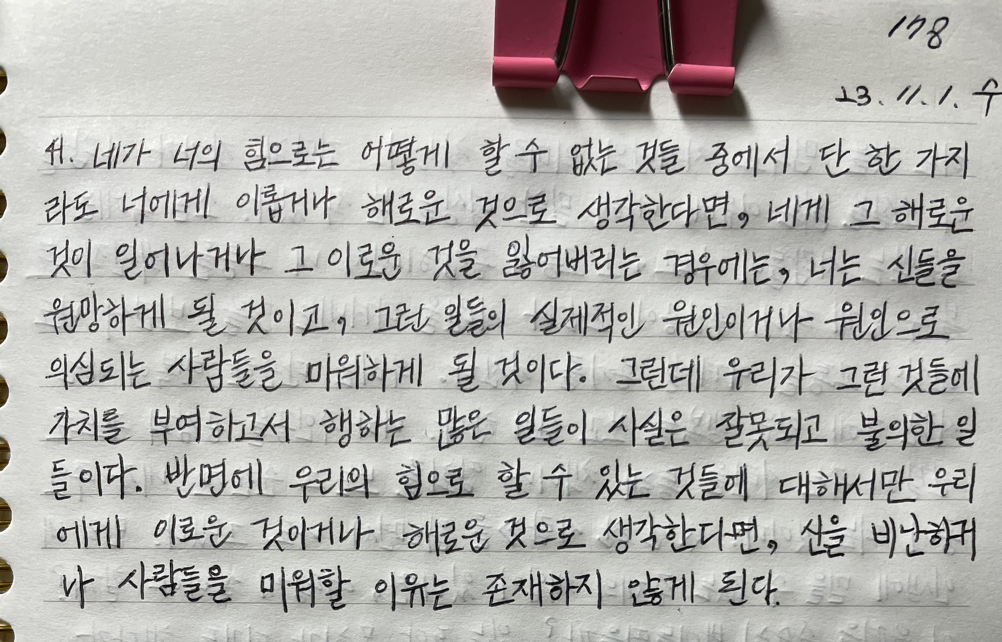 178
23. 11. 1. 수
41. 네가 너의 힘으로는 어떻게 할 수 없는 것들 중에서 단 한 가지
라도 너에게 이롭거나 해로운 것으로 생각한다면, 네게 그 해로운
것이 일어나거나 그 이로운 것을 잃어버리는 경우에는, 너는 신들을
원망하게 될 것이고, 그런 일들의 실제적인 원인이거나 원인으로
의심되는 사람들을 미워하게 될 것이다. 그런데 우리가 그런 것들에
가치를 부여하고서 행하는 많은 일들이 사실은 잘못되고 불의한 일
들이다. 반면에 우리의 힘으로 할 수 있는 것들에 대해서만 우리
에게 이로운 것이거나 해로운 것으로 생각한다면, 신을 비난하거
나 사람들을 미워할 이유는 존재하지 않게 된다.